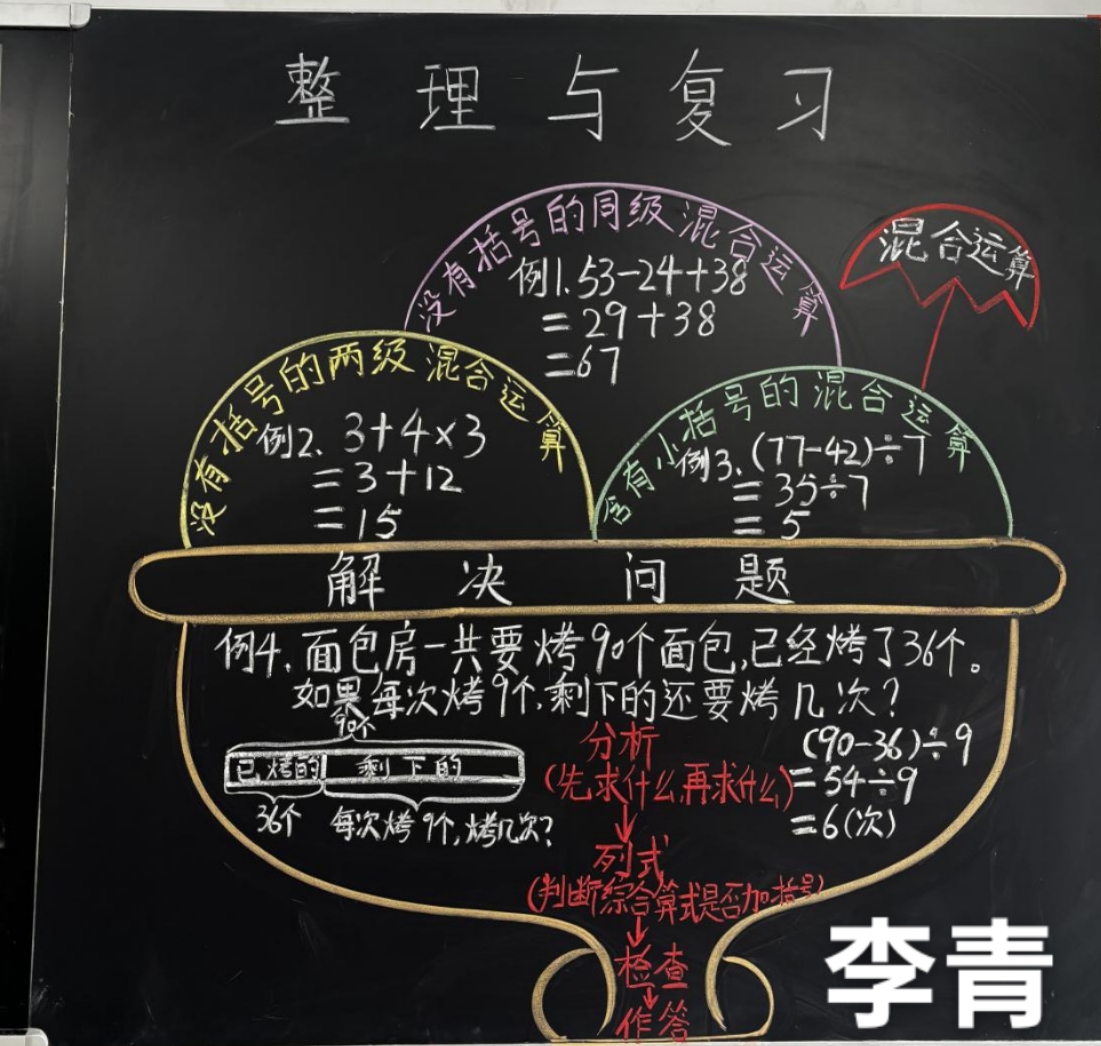 整理与复习
混合运算
没有括号的同级混合运算
例1.53-24+38
=29+38
=67
没有括号的两级混合运算
例2、3+4×3
=3+12
=15
含有小括号的混合运算
例3、(77-42)÷7
=35÷7
=5
解决问题
例4、面包房一共要烤90个面包,已经烤了36个。
如果每次烤9个,剩下的还要烤几次?
90个
已烤的 剩下的
36个 每次烤9个,烤几次?
分析
(先求什么,再求什么)
↓
列式
(判断综合算式是否加括号)
↓
检查
↓
作答
(90-36)÷9
=54÷9
=6(次)
李青